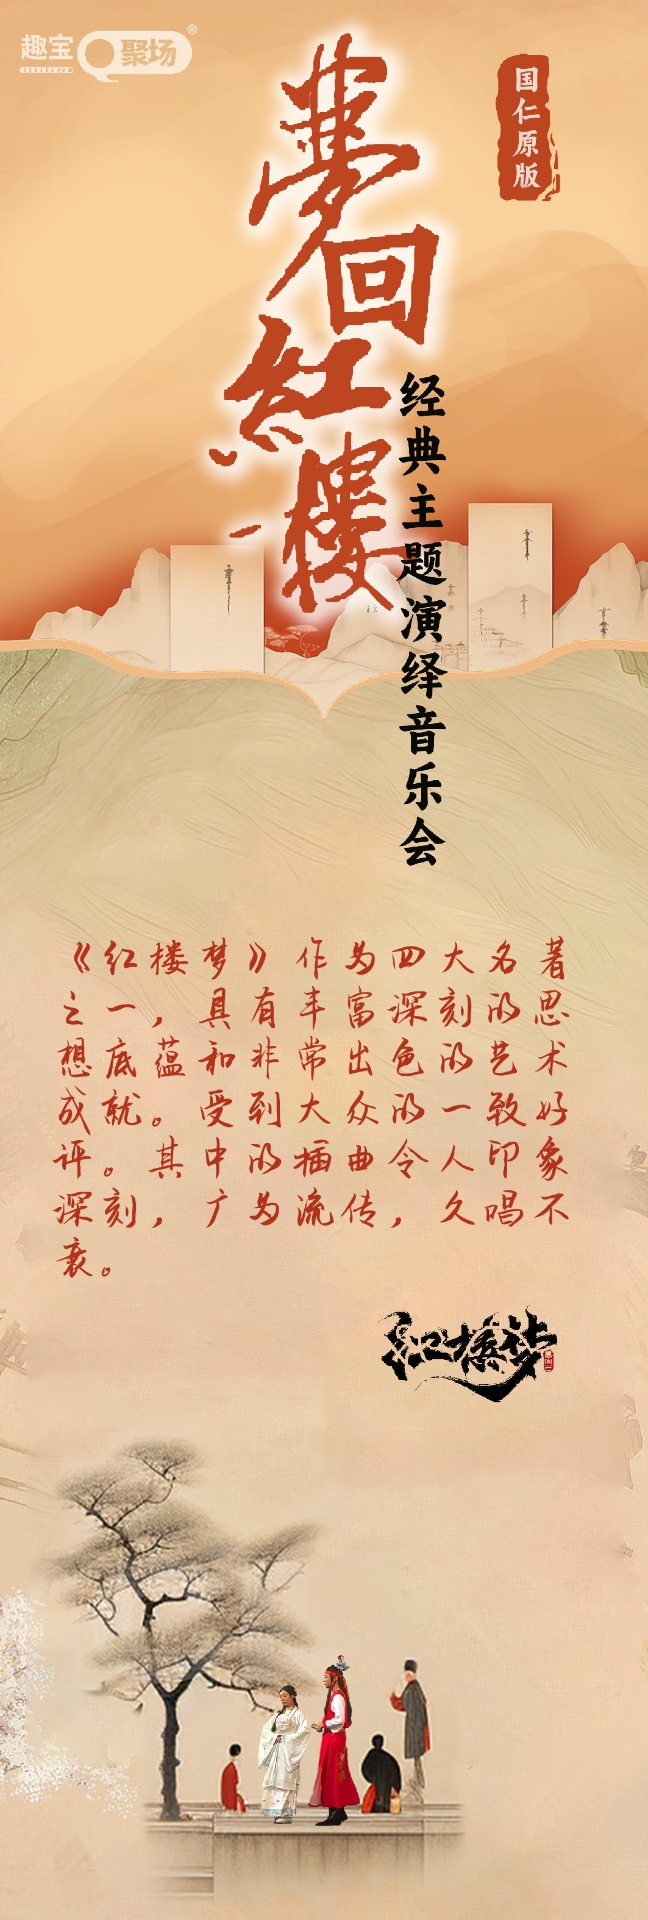 趣宝
聚场®
国仁原版
夢回紅樓
经典主题演绎音乐会
《红楼梦》作为四大名著
之一，具有丰富深刻的思
想底蕴和非常出色的艺术
成就。受到大众的一致好
评。其中的插曲令人印象
深刻，广为流传，久唱不
衰。
红楼梦